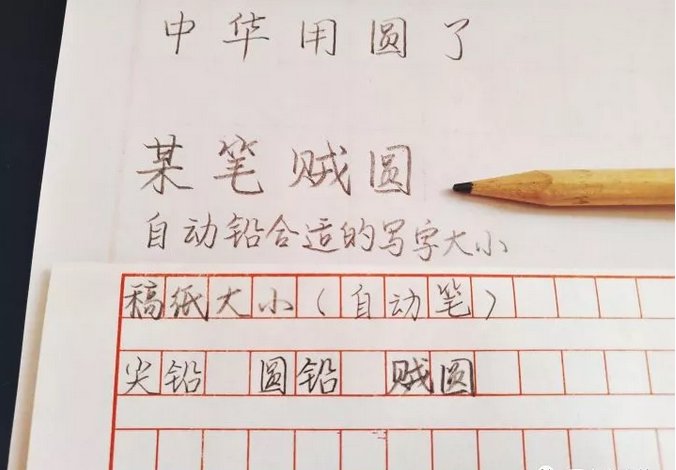 中华用圆了
某笔贼圆
自动铅合适的写字大小
稿纸大小(自动笔)
尖铅 圆铅 贼圆